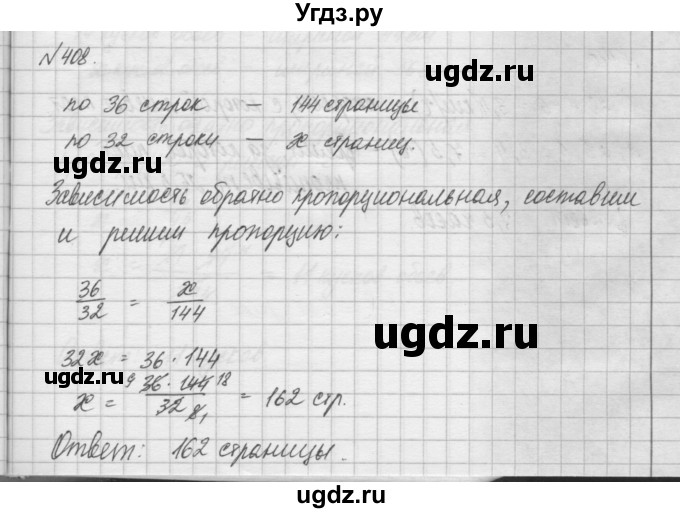 Угдз.ру
№408.
ugdz.ru
по 36 строк — 144 страницы
по 32 строки — x страниц.
ugdz.ru
Зависимость обратно пропорциональная, составим
и решим пропорцию:
36/32 = x/144
ugdz.ru
32x = 36 · 144
ugdz.ru
x = 9 36 · 144 18 / 32 8 1 = 162 стр.
Ответ: 162 страницы.
ugdz.ru
ugdz.ru